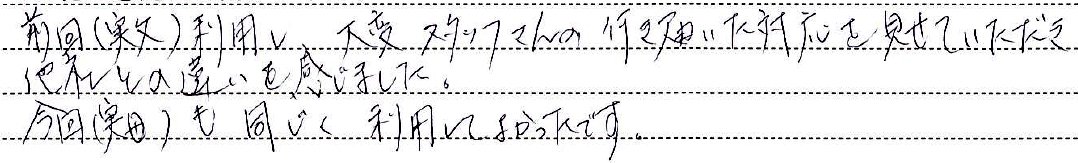 前回(実父)利用し、大変スタッフさんの行き届いた対応を見せていただき
他社との違いを感じました。
今回(実母)も同じく利用してよかったです。